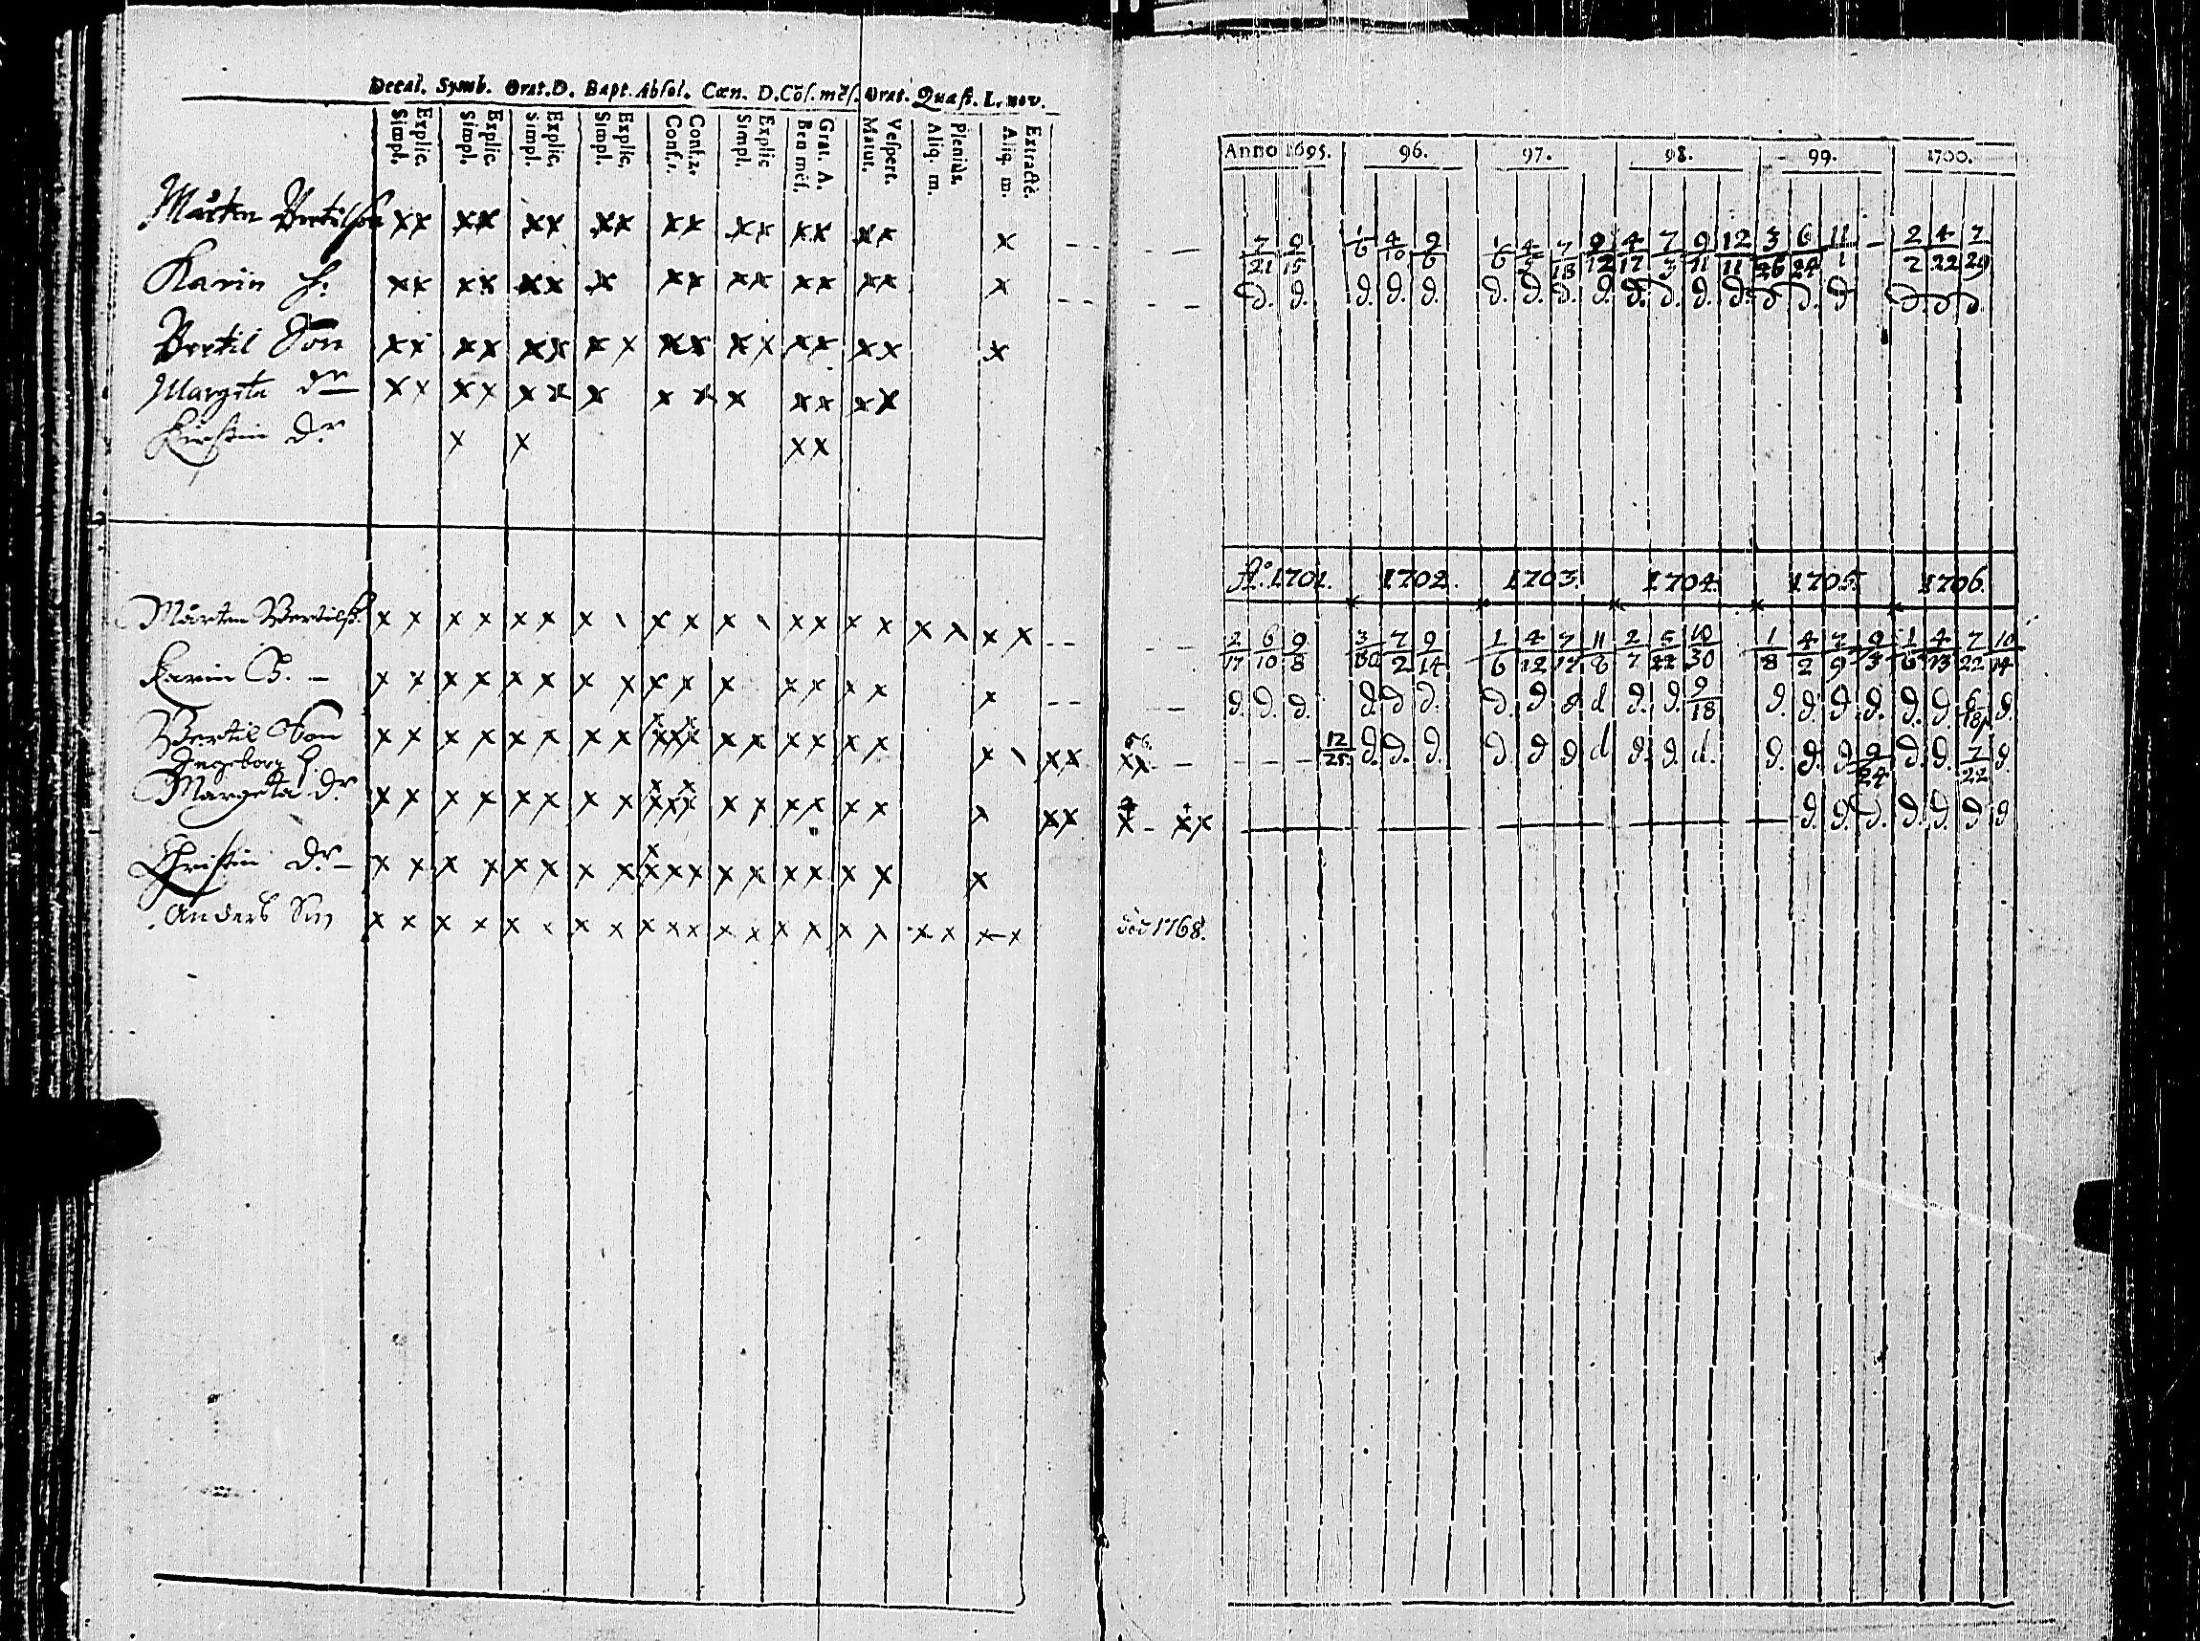 Decal. Symb. Orat.D. Bapt. Absol. Cœn. D. Cõſ. mẽſ. Orat. Quæſt. L. nov.
Explic. Simpl. Explic. Simpl. Explic. Simpl. Explic. Simpl. Conf.2. Conf.1. Explic Simpl. Grat. A. Ben mẽſ. Veſpert. Matut. Pleniùs. Aliq. m. Extractè. Aliq. m.
Mårten Bertilſon xx xx xx xx xx xx xx xx x
Karin h. xx xx xx x xx xx xx xx x
Bertil Son xx xx xx x x xx x x xx xx x
Margeta dr x x x x x x x x x x x x x x
Kirstin dr x x x x
Mårten Bertilſ. x x x x x x x \ x x x \ x x x x x x x x
Karin H. – x x x x x x x x x x x x x x x x
Bertil Son x x x x x x x x x x x x x x x x x x x x \ x x
Ingeborg h.
Margeta dr x x x x x x x x x x x x x x x x x x x x x x
Christin dr – x x x x x x x x x x x x x x x x x x x
Anders Sn x x x x x x x x x x x x x x x x x x x x x
Anno 1695. 96. 97. 98. 99. 1700.
7/21 9/15 1/6 4/10 9/6 1/6 4/5 7/18 9/12 4/17 7/3 9/11 12/11 3/26 6/24 11/1 – 2/2 4/22 7/29
d. d. d. d. d. d. d. d. d. d. d. d. d. d. d. d. d. d. d.
A:o 1701. 1702. 1703. 1704. 1705. 1706.
2/17 6/10 9/8 3/30 7/2 9/14 1/6 4/12 7/17 11/8 2/7 5/22 10/30 1/8 4/2 7/9 9/3 1/6 4/13 7/22 10/14
d. d. d. d. d. d. d. d d d d. d. 9/18 d. d. d. d. d. d. 6/18 d.
xx – – – – 12/25 d. d. d. d. d d d d. d. d. d. d. d 9/24 d. d. 7/22 d.
x – xx d. d. d. d. d. d d
död 1768.